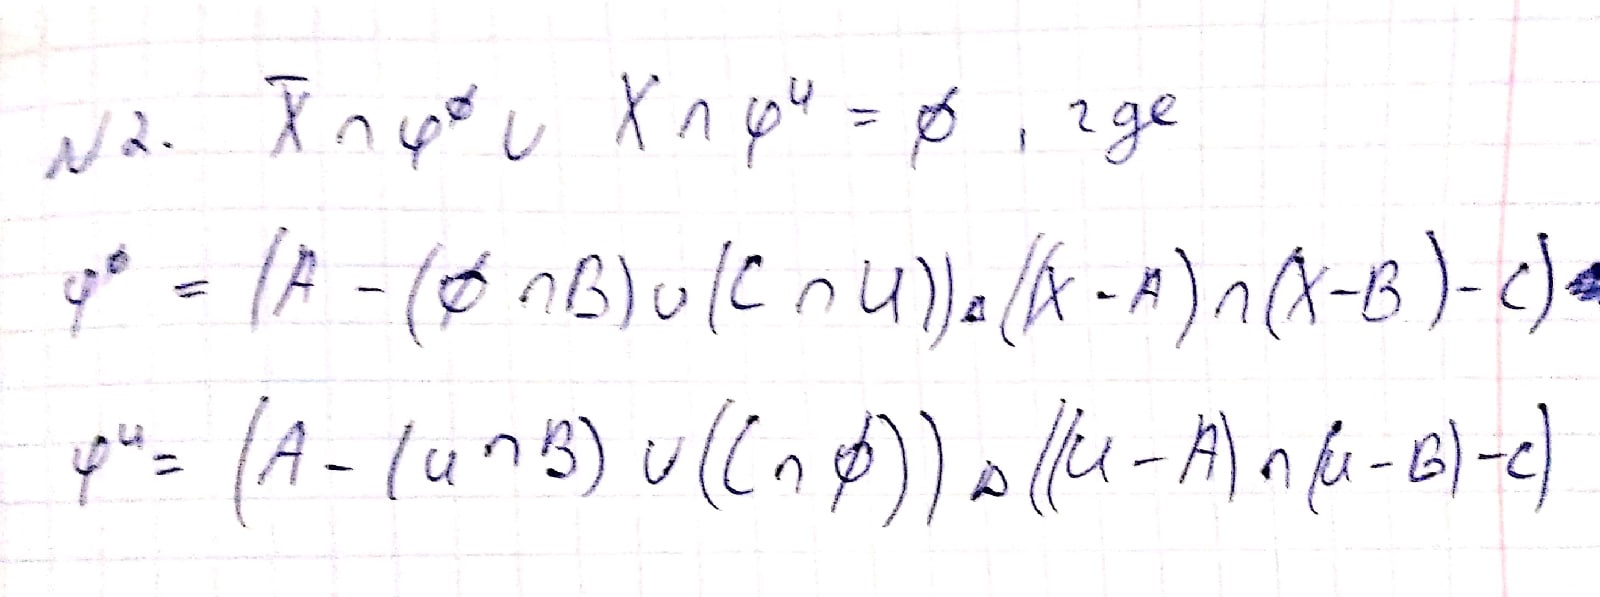 N2. X̅ ∩ φ^∅ ∪ X ∩ φ^U = ∅, где
φ^∅ = (A - (∅ ∩ B) ∪ (C ∩ U)) △ ((X - A) ∩ (X - B) - C)
φ^U = (A - (U ∩ B) ∪ (C ∩ ∅)) △ ((U - A) ∩ (U - B) - C)